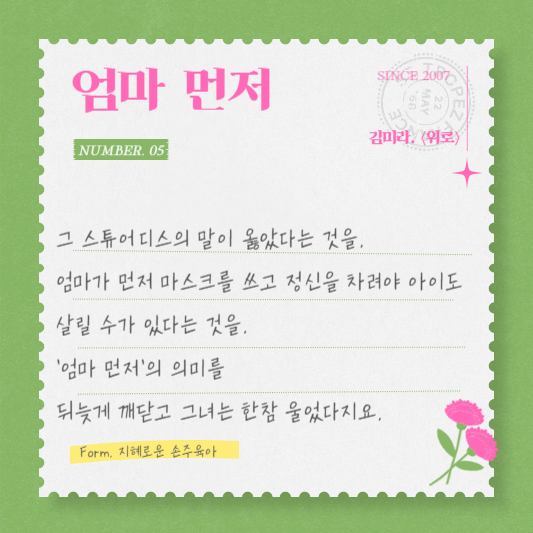 엄마 먼저
SINCE 2007
22
MAY
'60
김미라, 〈위로〉
NUMBER. 05
그 스튜어디스의 말이 옳았다는 것을.
엄마가 먼저 마스크를 쓰고 정신을 차려야 아이도
살릴 수가 있다는 것을.
'엄마 먼저'의 의미를
뒤늦게 깨닫고 그녀는 한참 울었다지요.
Form. 지혜로운 손주육아